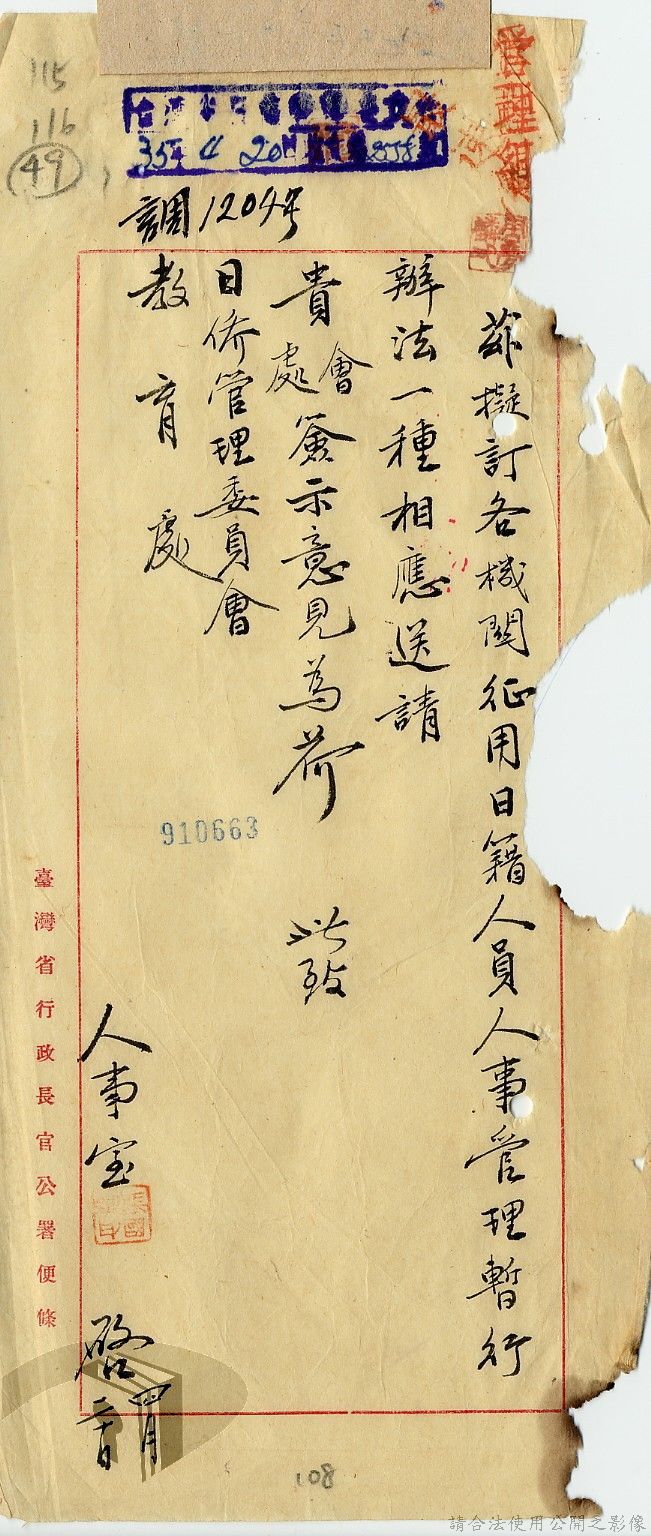 管理組
茲擬訂各機關征用日籍人員人事管理暫行
辦法一種相應送請
貴會處簽示意見為荷 此致
日僑管理委員會
教育處
人事室 啓 四月
調1204号
35年4月20日
115
116
49
910663
臺灣省行政長官公署便條
108
請合法使用公開之影像